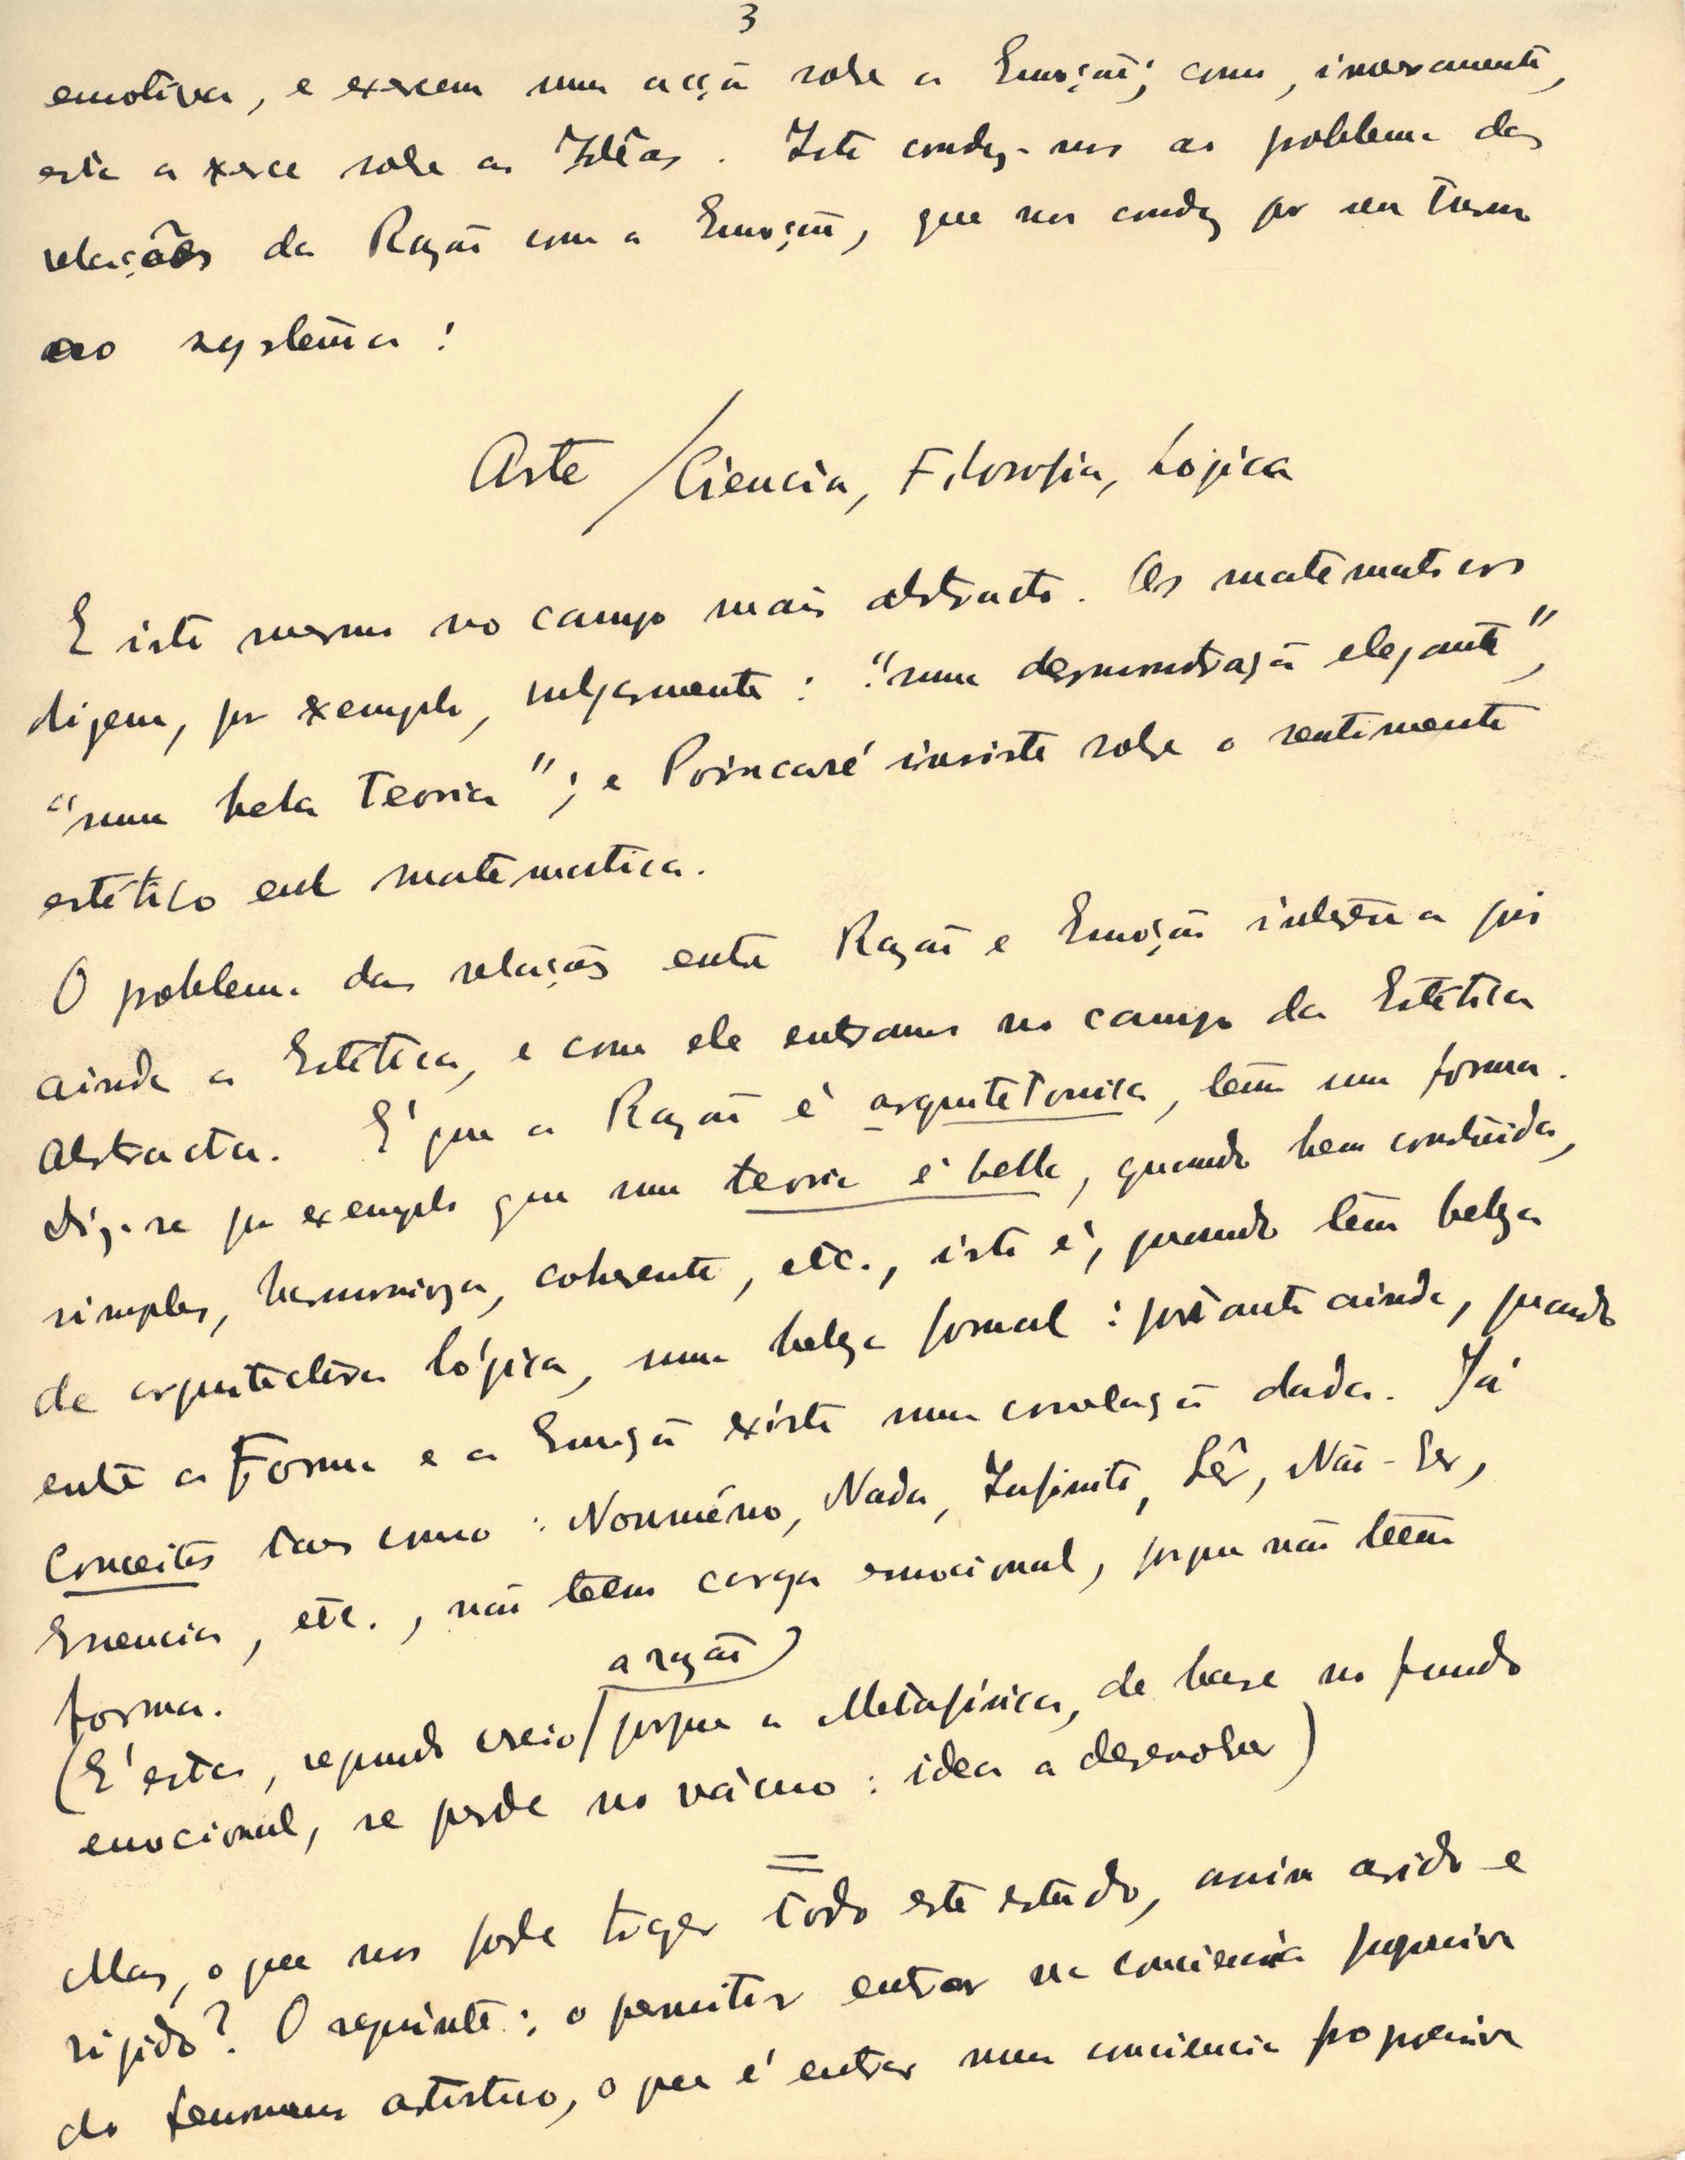 3
emotiva, e exercem uma acção sobre a Emoção; como, inversamente,
esta a exerce sobre as Idêas. Isto conduz-nos ao problema das
relações da Razão com a Emoção, que nos conduz por seu turno
ao systema:
Arte / Ciencia, Filosofia, Lógica
E isto mesmo no campo mais abstracto. Os matematicos
dizem, por exemplo, vulgarmente: "uma desmonstração elegante",
"uma bela teoria"; e Poincaré insiste sobre o sentimento
estético em matematica.
O problema das relações entre Razão e Emoção interessa pois
ainda a Estética, e com ele entramos no campo da Estética
Abstracta. E' que a Razão é arquitetonica, tem uma forma.
Diz-se por exemplo que uma teoria é bella, quando bem construida,
simples, harmoniosa, coherente, etc., isto é, quando tem beleza
de arquitectura lógica, uma beleza formal: portanto ainda, quando
entre a Forma e a Emoção existe uma correlação dada. Já
Conceitos taes como: Nouméno, Nada, Infinito, Sêr, Não-Ser,
Essencia, etc., não teem carga emocional, porque não teem
forma.
a razão
(E' esta, segundo creio porque a Metafísica, de base no fundo
emocional, se perde no vácuo: idea a desenvolver)
Mas, o que nos pode trazer todo este estudo, assim arido e
rigido? O seguinte: o permitir entrar na consciencia progressiva
do fenomeno artistico, o que é entrar numa consciencia progressiva